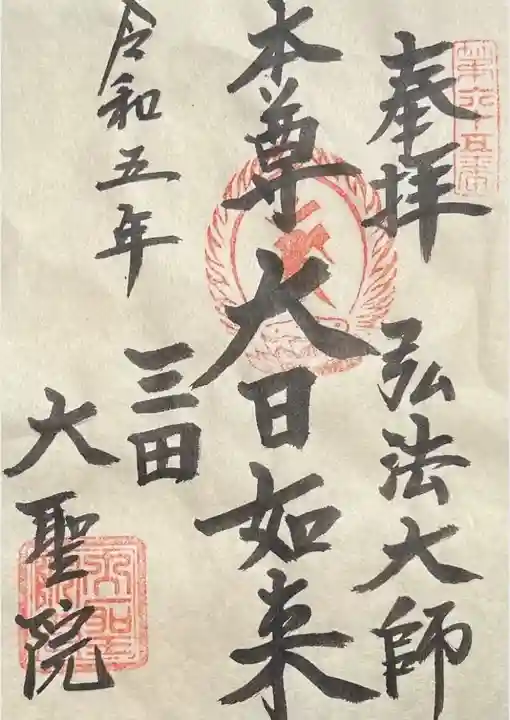 奉拝
弘法大師
本尊大日如来
令和五年
三田
大聖院
第六十五番